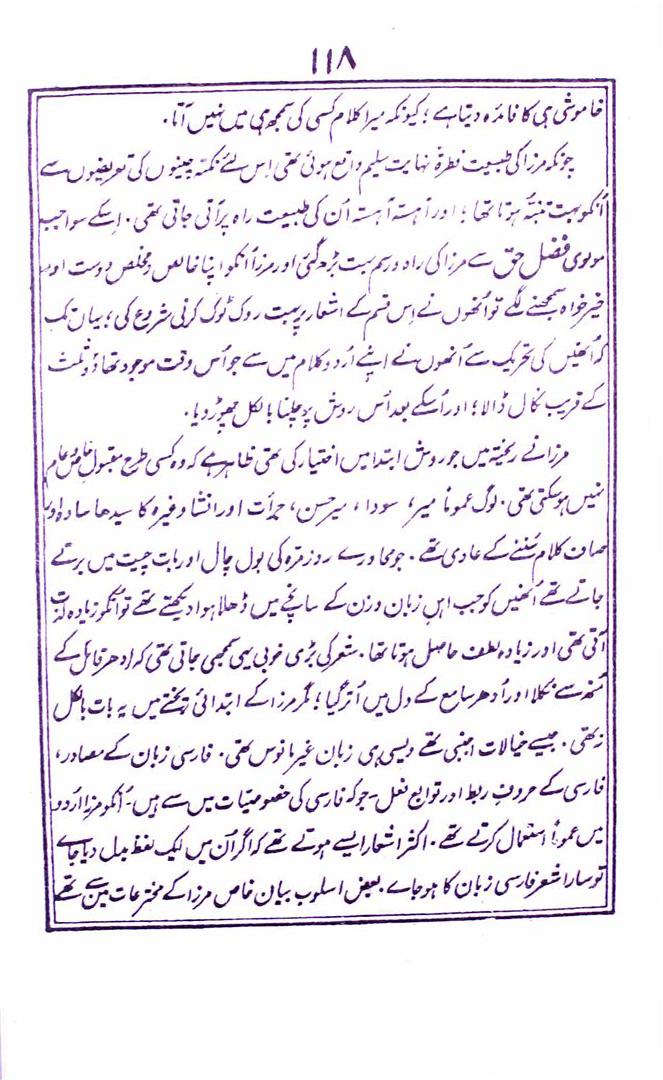 ۱۱۸
خاموشی ہی کا فائدہ دیتا ہے؛ کیونکہ میرا کلام کسی کی سمجھ ہی میں نہیں آتا۔
چونکہ مرزا کی طبیعت فطرۃً نہایت سلیم واقع ہوئی تھی اِس لئے نکتہ چینوں کی تعریضوں سے
اُنکو بہت تنبّہ ہوتا تھا؛ اور آہستہ آہستہ اُن کی طبیعت راہ پر آتی جاتی تھی۔ اِسکے سوا جب
مولوی فضل حق سے مرزا کی راہ و رسم بہت بڑھ گئی اور مرزا اُنکو اپنا خالص و مخلص دوست اور
خیرخواہ سمجھنے لگے تو اُنھوں نے اِس قسم کے اشعار پر بہت روک ٹوک کرنی شروع کی؛ یہاں تک
کہ اُنھیں کی تحریک سے اُنھوں نے اپنے اُردو کلام میں سے جو اُس وقت موجود تھا دو ثلث
کے قریب نکال ڈالا؛ اور اُسکے بعد اُس روش پر چلنا بالکل چھوڑ دیا۔
مرزا نے ریختہ میں جو روش ابتدا میں اختیار کی تھی ظاہر ہے کہ وہ کسی طرح مقبولِ خاص و عام
نہیں ہو سکتی تھی۔ لوگ عموماً میر، سودا، میرحسن، جرأت اور انشا وغیرہ کا سیدھا سادہ اور
صاف کلام سُننے کے عادی تھے۔ جو محاورے روزمرّہ کی بول چال اور بات چیت میں برتے
جاتے تھے اُنھیں کو جب اہلِ زبان وزن کے سانچے میں ڈھلا ہوا دیکھتے تھے تو اُنکو زیادہ لذت
آتی تھی اور زیادہ لطف حاصل ہوتا تھا۔ شعر کی بڑی خوبی یہی سمجھی جاتی تھی کہ اِدھر قائل کے
مُنھ سے نکلا اور اُدھر سامع کے دل میں اُتر گیا؛ مگر مرزا کے ابتدائی ریختے میں یہ بات بالکل
نہ تھی۔ جیسے خیالات اجنبی تھے ویسی ہی زبان غیر مانوس تھی۔ فارسی زبان کے مصادر،
فارسی کے حروفِ ربط اور توابعِ فعل - جو کہ فارسی کی خصوصیات میں سے ہیں - اُنکو مرزا اُردو
میں عموماً استعمال کرتے تھے۔ اکثر اشعار ایسے ہوتے تھے کہ اگر اُن میں ایک لفظ بدل دیا جاے
تو سارا شعر فارسی زبان کا ہو جاے۔ بعض اسلوبِ بیان خاص مرزا کے مخترعات میں سے تھے